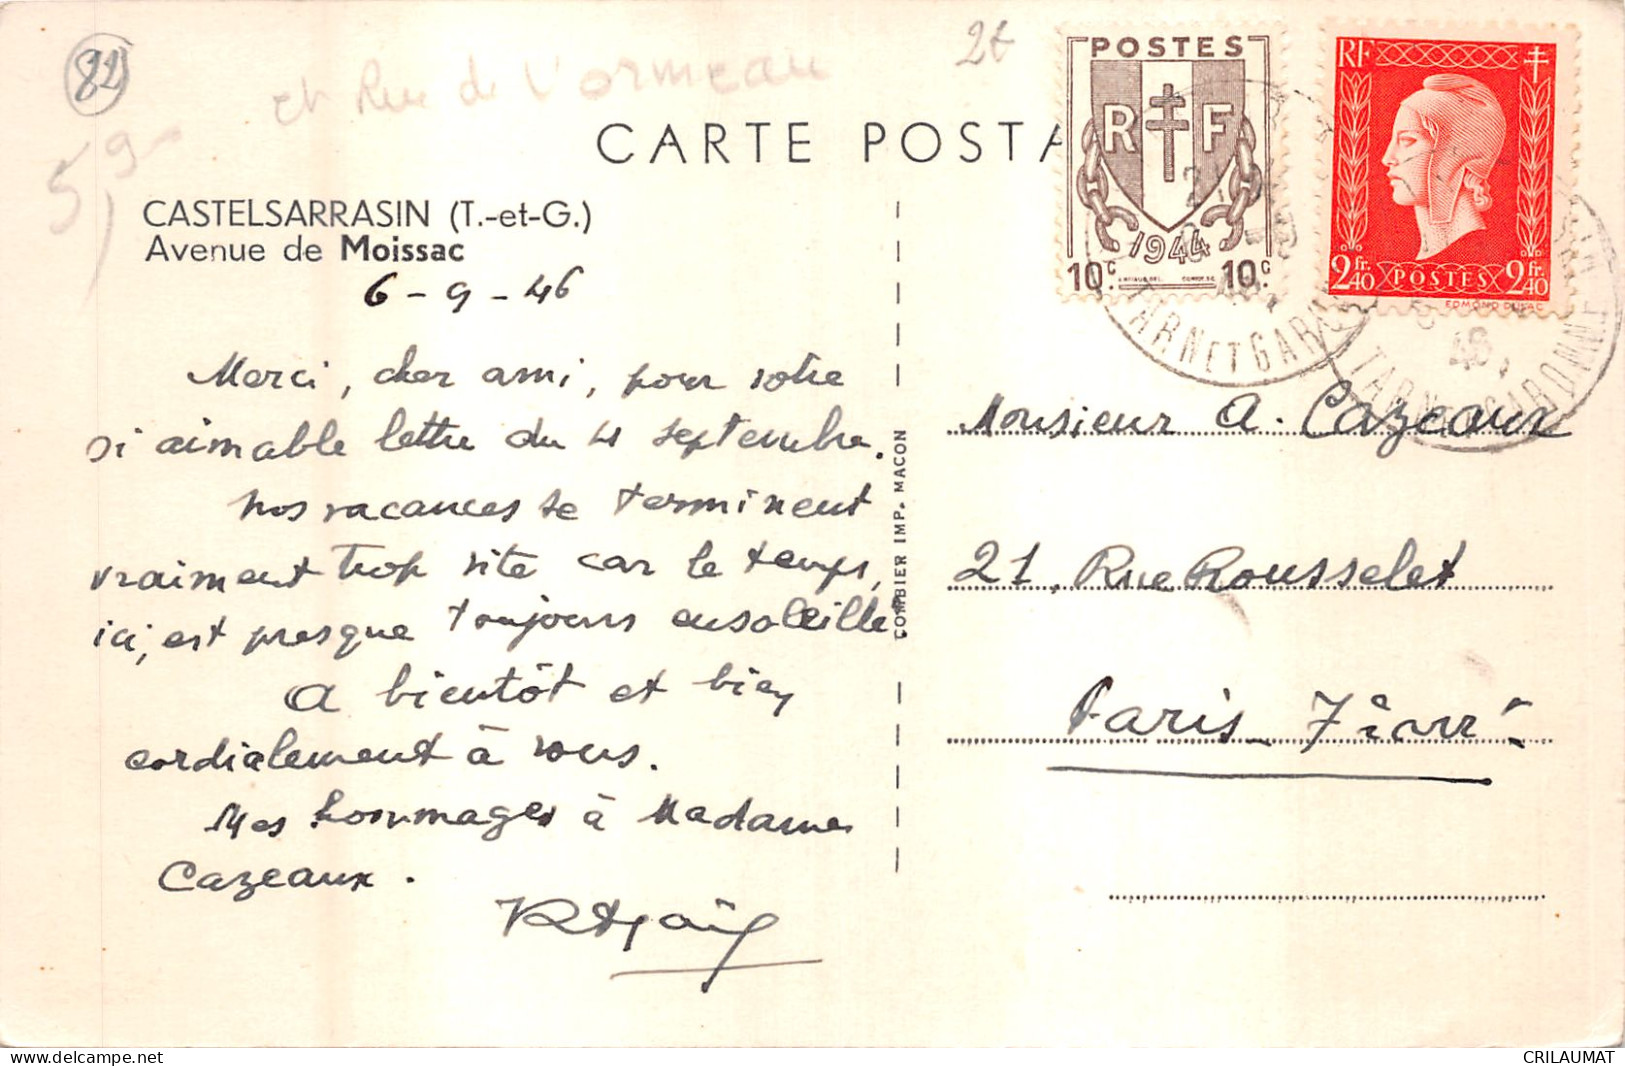 82
5,9-
et Rue de l'ormeau
2€
CARTE POSTA
CASTELSARRASIN (T.-et-G.)
Avenue de Moissac
6-9-46
Merci, cher ami, pour votre
si aimable lettre du 4 septembre.
Nos vacances se terminent
vraiment trop vite car le temps,
ici, est presque toujours ensoleillé.
A bientôt et bien
cordialement à vous.
Mes hommages à Madame
Cazeaux.
COMBIER IMP. MACON
POSTES
R F
1944
10c. 10c.
RF
2fr.40 POSTES 2fr.40
EDMOND DULAC
TARN ET GARONNE
46
TARN ET GARONNE
Monsieur A. Cazeaux
21, Rue Rousselet
Paris 7
CRILAUMAT
delcampe.net